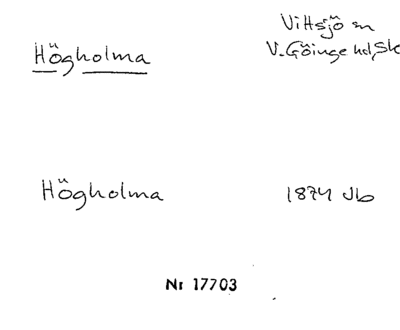 Högholma
Vittsjö sn
V. Göinge hd, Sk
Högholma
1874 Jb
Nr 17703